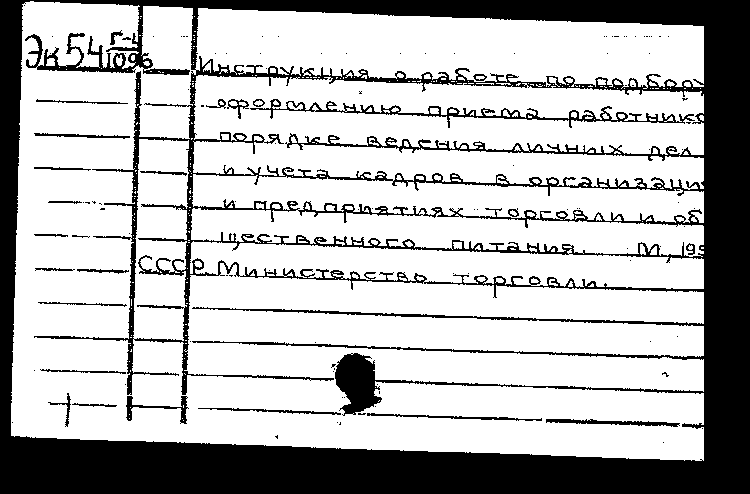 Эк 54 Г-4/1096
Инструкция о работе по подбору
оформлению приема работнико
порядке ведения личных дел
и учета кадров в организаци
и предприятиях торговли и об
щественного питания. М, 195
СССР Министерство торговли.